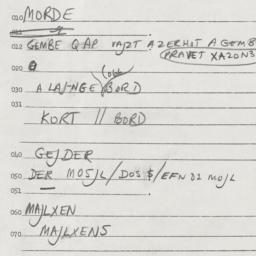 010 MORDE
011
012 GEMBE QAP VAJZT AZERHOT A GEMB
PRAVET XAZON3
020
030 A LAJ-NGE BORD
031
KORT // BORD
040 GEJDER
050 DER MOSJL / DOS $ / EFN DZ MOJL
051
060 MAJLXEN
070 MAJLXENS